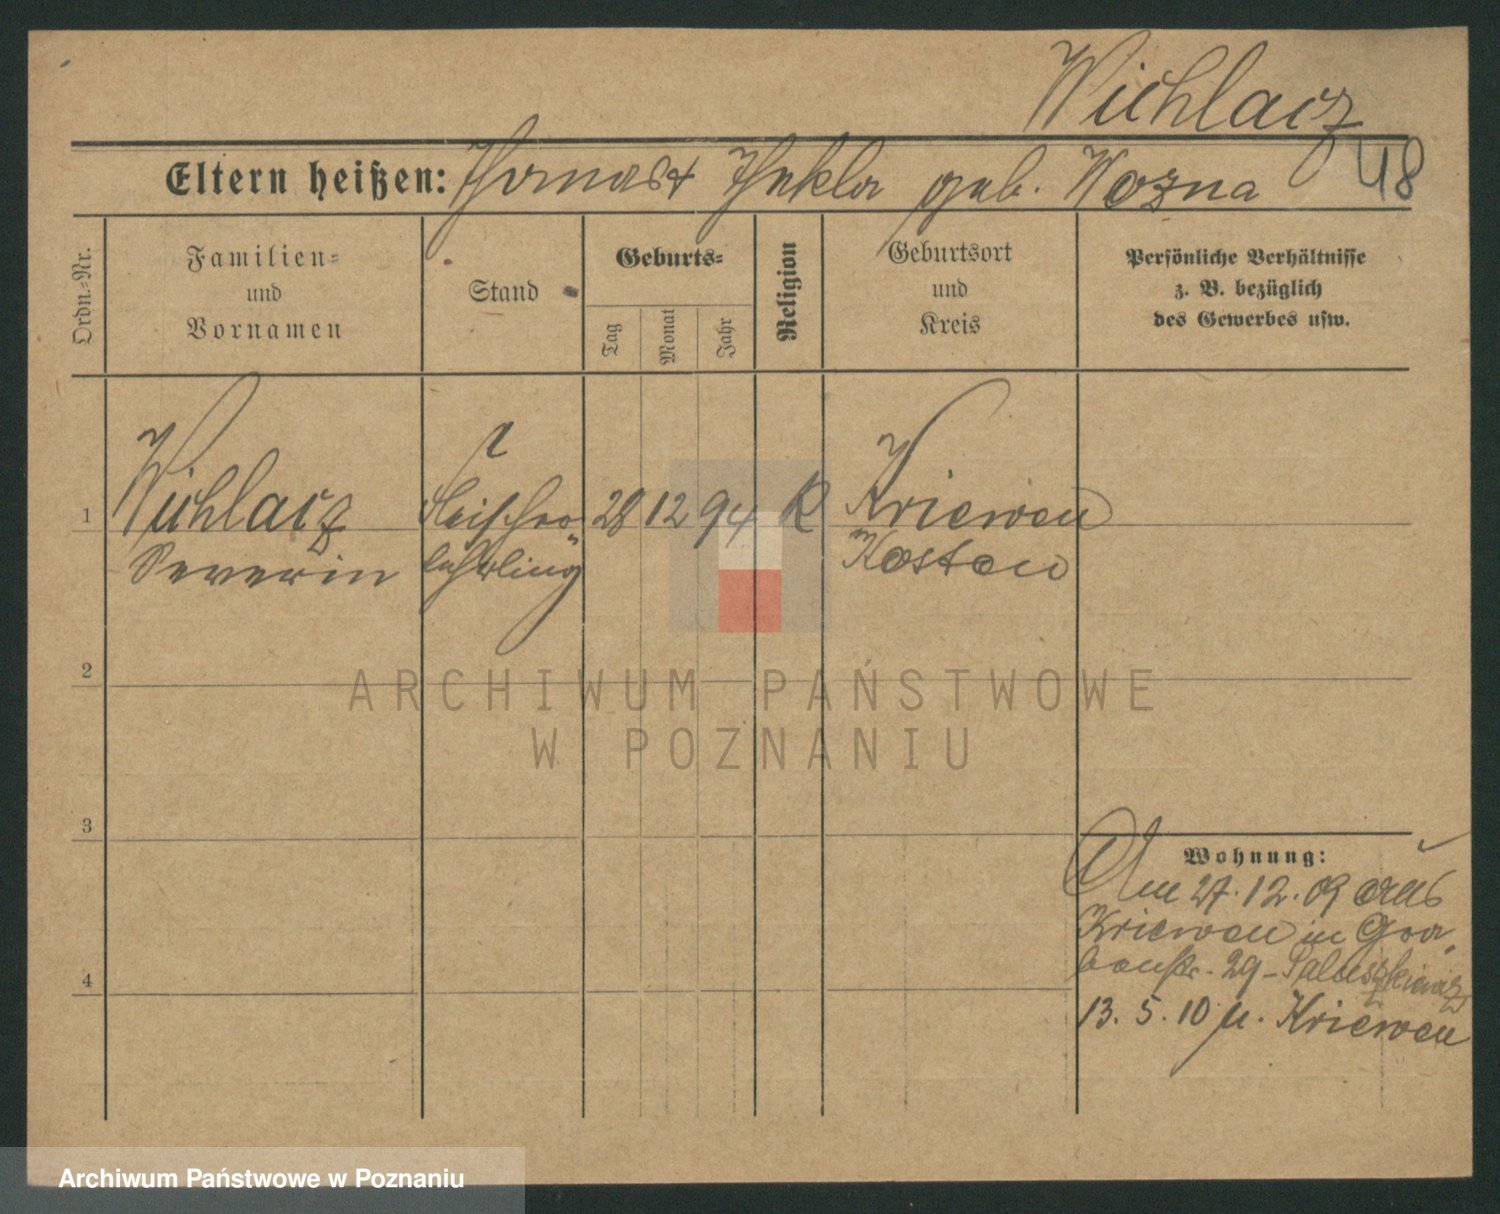 Wichlacz
48
Eltern heißen: Thomas & Thekla geb. Wozna
Ordn.-Nr.
Familien-
und
Vornamen
Stand
Geburts-
Tag
Monat
Jahr
Religion
Geburtsort
und
Kreis
Persönliche Verhältnisse
z. B. bezüglich
des Gewerbes usw.
1
Wichlacz
Severin
Fleischer-
lehrling
28 12 94 K
Kriewen
Kosten
2
3
4
Wohnung:
Am 27.12.09 aus
Kriewen in
29 - Paluszkiewicz
13. 5. 10 n. Kriewen
ARCHIWUM PAŃSTWOWE
W POZNANIU
Archiwum Państwowe w Poznaniu